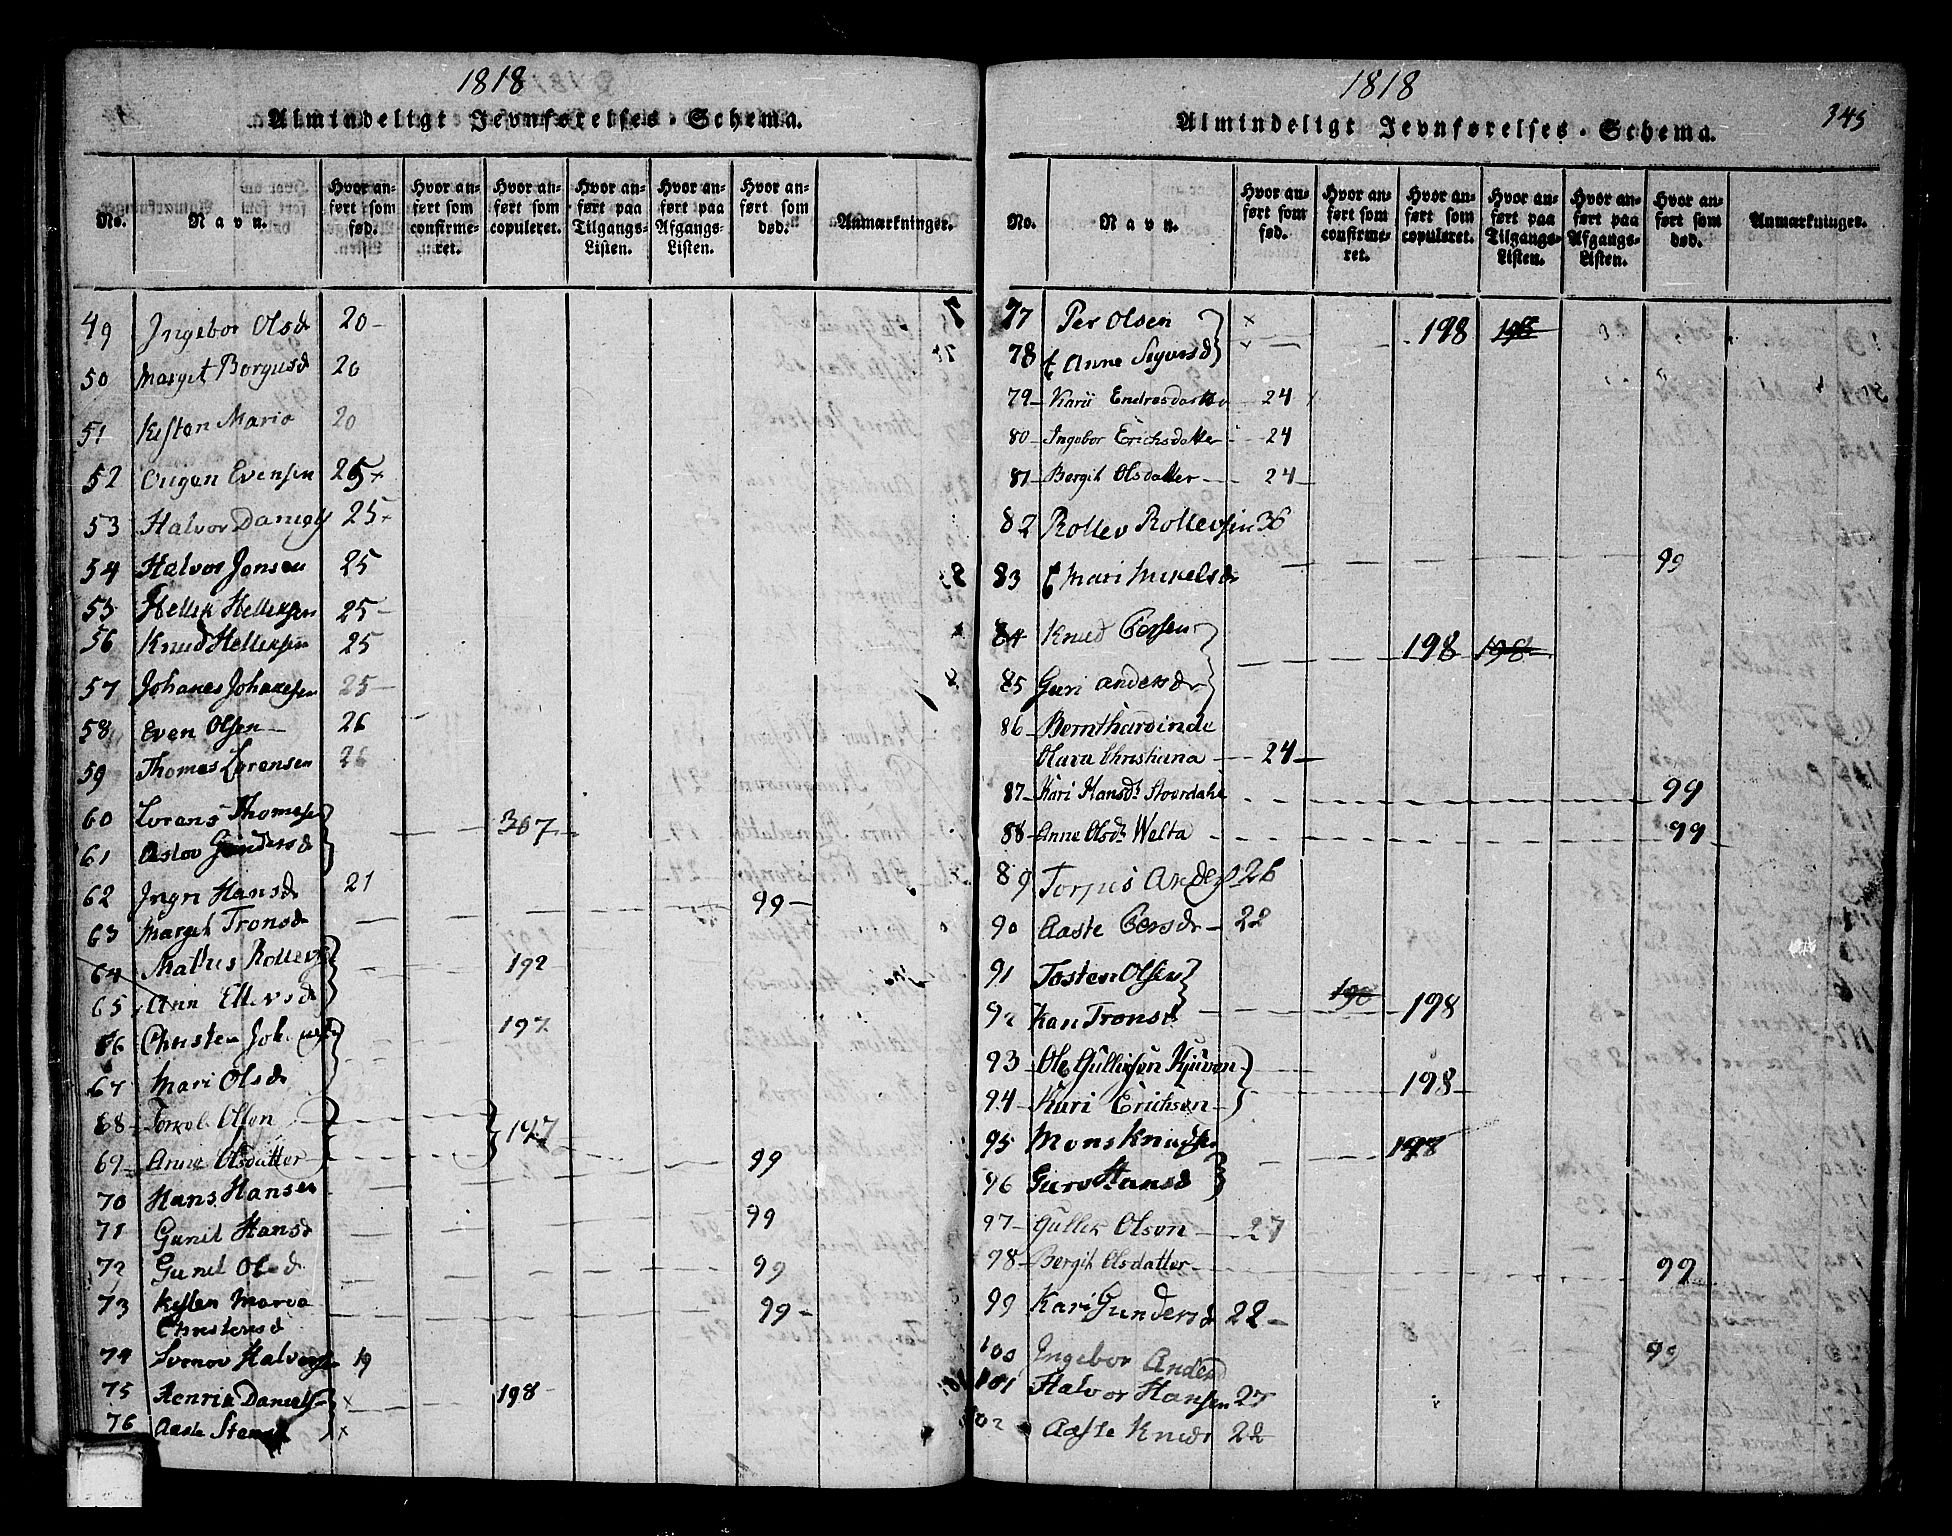 1818
Almindeligt Jevnførelses-Schema.
No. Navn. Hvor anført som fød. Hvor anført som confirmeret. Hvor anført som copuleret. Hvor anført paa Tilgangs-Listen. Hvor anført paa Afgangs-Listen. Hvor anført som død. Anmærkninger.
49 Ingebor Olsd 20
50 Margit Borgusd 20
51 Kisten Maria 20
52 Evensen 25
53 Halvor 25
54 Halvor Jonsen 25
55 Hellek Helleksen 25
56 Knud Helleksen 25
57 Johanes Johanesen 25
58 Even Olsen 26
59 Thomas Lorensen 26
60 Lorans Thomesen
61 Aslov Gundersd 367
62 Ingri Hansd 21
63 Margit Tronsd 99
64 Mathis Rollevs 192
65 Ann Ellevsd
66 Christen Joh 197
67 Mari Olsd
68 Torkel Olsen 147
69 Anne Olsdatter
70 Hans Hansen 99
71 Gunil Hansd 99
72 Gunil Olsd 99
73 Kisten Marea 99
Christensd
74 Svenov Halvorsen 19
75 Henrik Daniels 198
76 Aaste
1818
345
Almindeligt Jevnførelses-Schema.
No. Navn. Hvor anført som fød. Hvor anført som confirmeret. Hvor anført som copuleret. Hvor anført paa Tilgangs-Listen. Hvor anført paa Afgangs-Listen. Hvor anført som død. Anmærkninger.
77 Per Olsen 198
78 Anne Sigursd
79 Kari Endresdatter 24
80 Ingebor Erichsdatter 24
81 Bergit Olsdatter 24
82 Rollev Rollevsen 36
83 Mari Mikelsd 99
84 Knud 198 198
85 Guri Andersd
86 Bernthardinde
Olava Christiana 24
87 Kari Hansdr Stoordahl 99
88 Anne Olsdr Welta 99
89 26
90 Aaste 22
91 Tosten Olsen
92 Kari Tronsd 198 198
93 Ole Gulliksen Kjuven
94 Kari Erichsen 198
95 Mons Knudsen 198
96 Guro Hansd
97 Gullik Olsen 27
98 Bergit Olsdatter 99
99 Kari Gundersd 22
100 Ingebor Andersd 99
101 Halvor Hansen 27
102 Aaste Knudsd 22